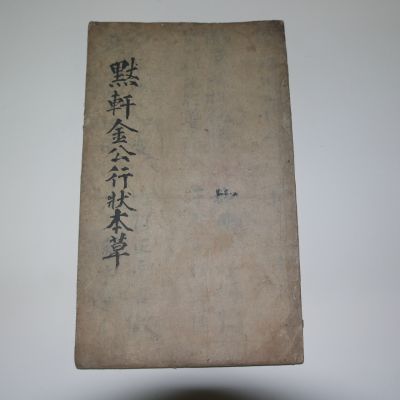 黙軒金公行狀本草